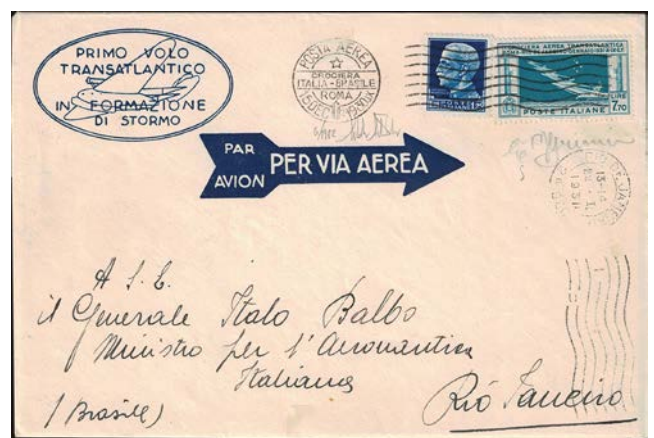 PRIMO VOLO
TRANSATLANTICO
IN FORMAZIONE
DI STORMO
POSTA AEREA
CROCIERA
ITALIA-BRASILE
ROMA
CROCIERA AEREA TRANSATLANTICA
LIRE
7,70
POSTE ITALIANE
PAR
AVION
PER VIA AEREA
13-14
1931
A S. E.
il Generale Italo Balbo
Ministro per l'Aeronautica
Italiana
Rió Janeiro
(Brasile)